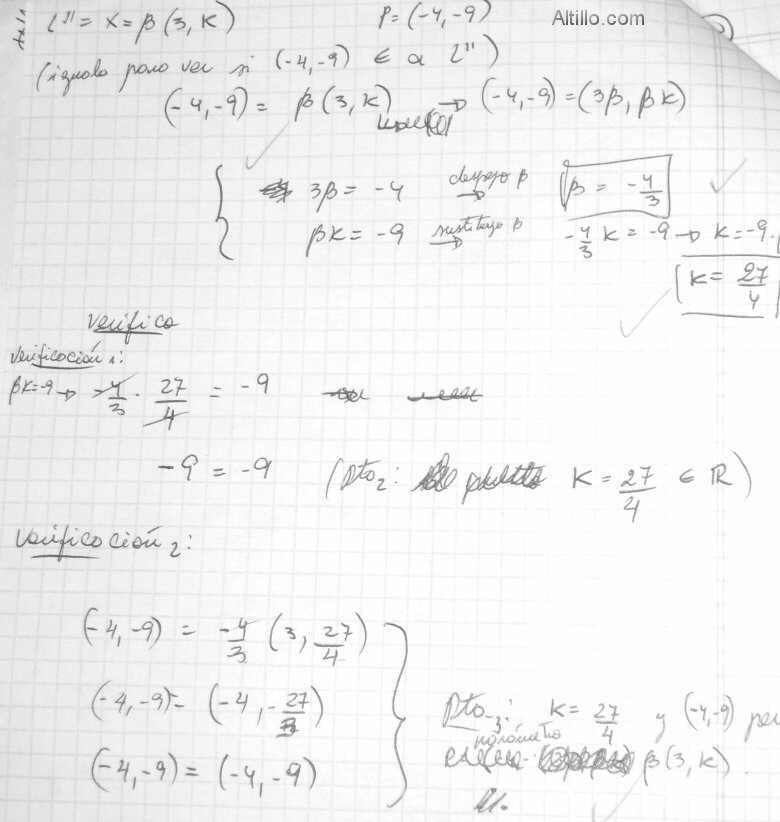 Altillo.com
L'' = X = β (3, K) P = (-4, -9)
(igualo para ver si (-4, -9) ∈ a L'')
(-4, -9) = β (3, K) → (-4, -9) = (3β, βK)
3β = -4 despejo β → β = -4/3
βK = -9 sustituyo β → -4/3 K = -9 → K = -9 .
K = 27/4
Verifico
Verificación 1:
βK = -9 → -4/3 . 27/4 = -9
-9 = -9 (Pto 2: K = 27/4 ∈ R)
Verificación 2:
(-4, -9) = -4/3 (3, 27/4)
(-4, -9) = (-4, -27/3)
(-4, -9) = (-4, -9)
Pto 3: K = 27/4 y (-4, -9)
β (3, K).